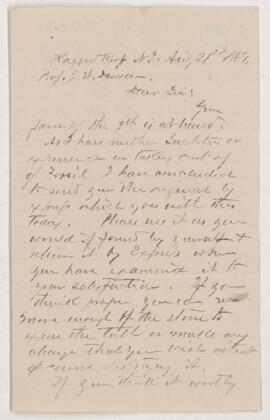 Prof. J. W. Dawson,
Dear Sir;
Your
favor of the 9th is at hand.
As I have neither facilities or
experience in taking cast of
of Fossil I have concluded
to send you the original by
express which goes with this
today. Please use it as you
would if found by yourself &
return it by Express when
you have examined it to
your satisfaction. If you
think proper you can re-
move enough of the stone to
expose the tooth or make any
change that you wish without
of course destroying it.
If you think it worthy